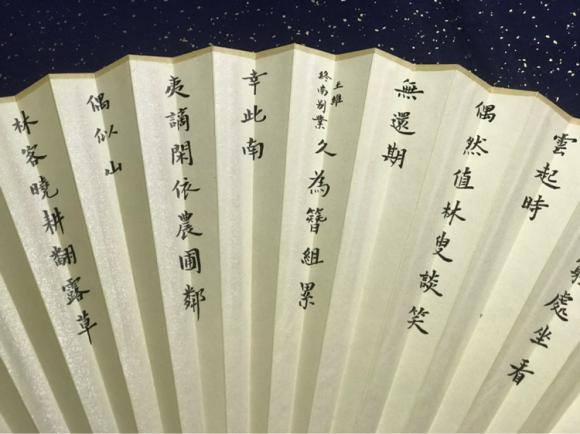 處坐看
雲起時
偶然值林叟談笑
無還期
王維
終南別業
久為簪組累
幸此南
夷謫閑依農圃鄰
偶似山
林客曉耕翻露草